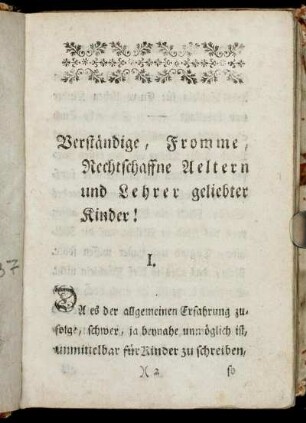 Verständige, Fromme,
Rechtschaffne Aeltern
und Lehrer geliebter
Kinder!
I.
DA es der allgemeinen Erfahrung zu-
folge, schwer, ja beynahe unmöglich ist,
unmittelbar für Kinder zu schreiben,
X 2 so